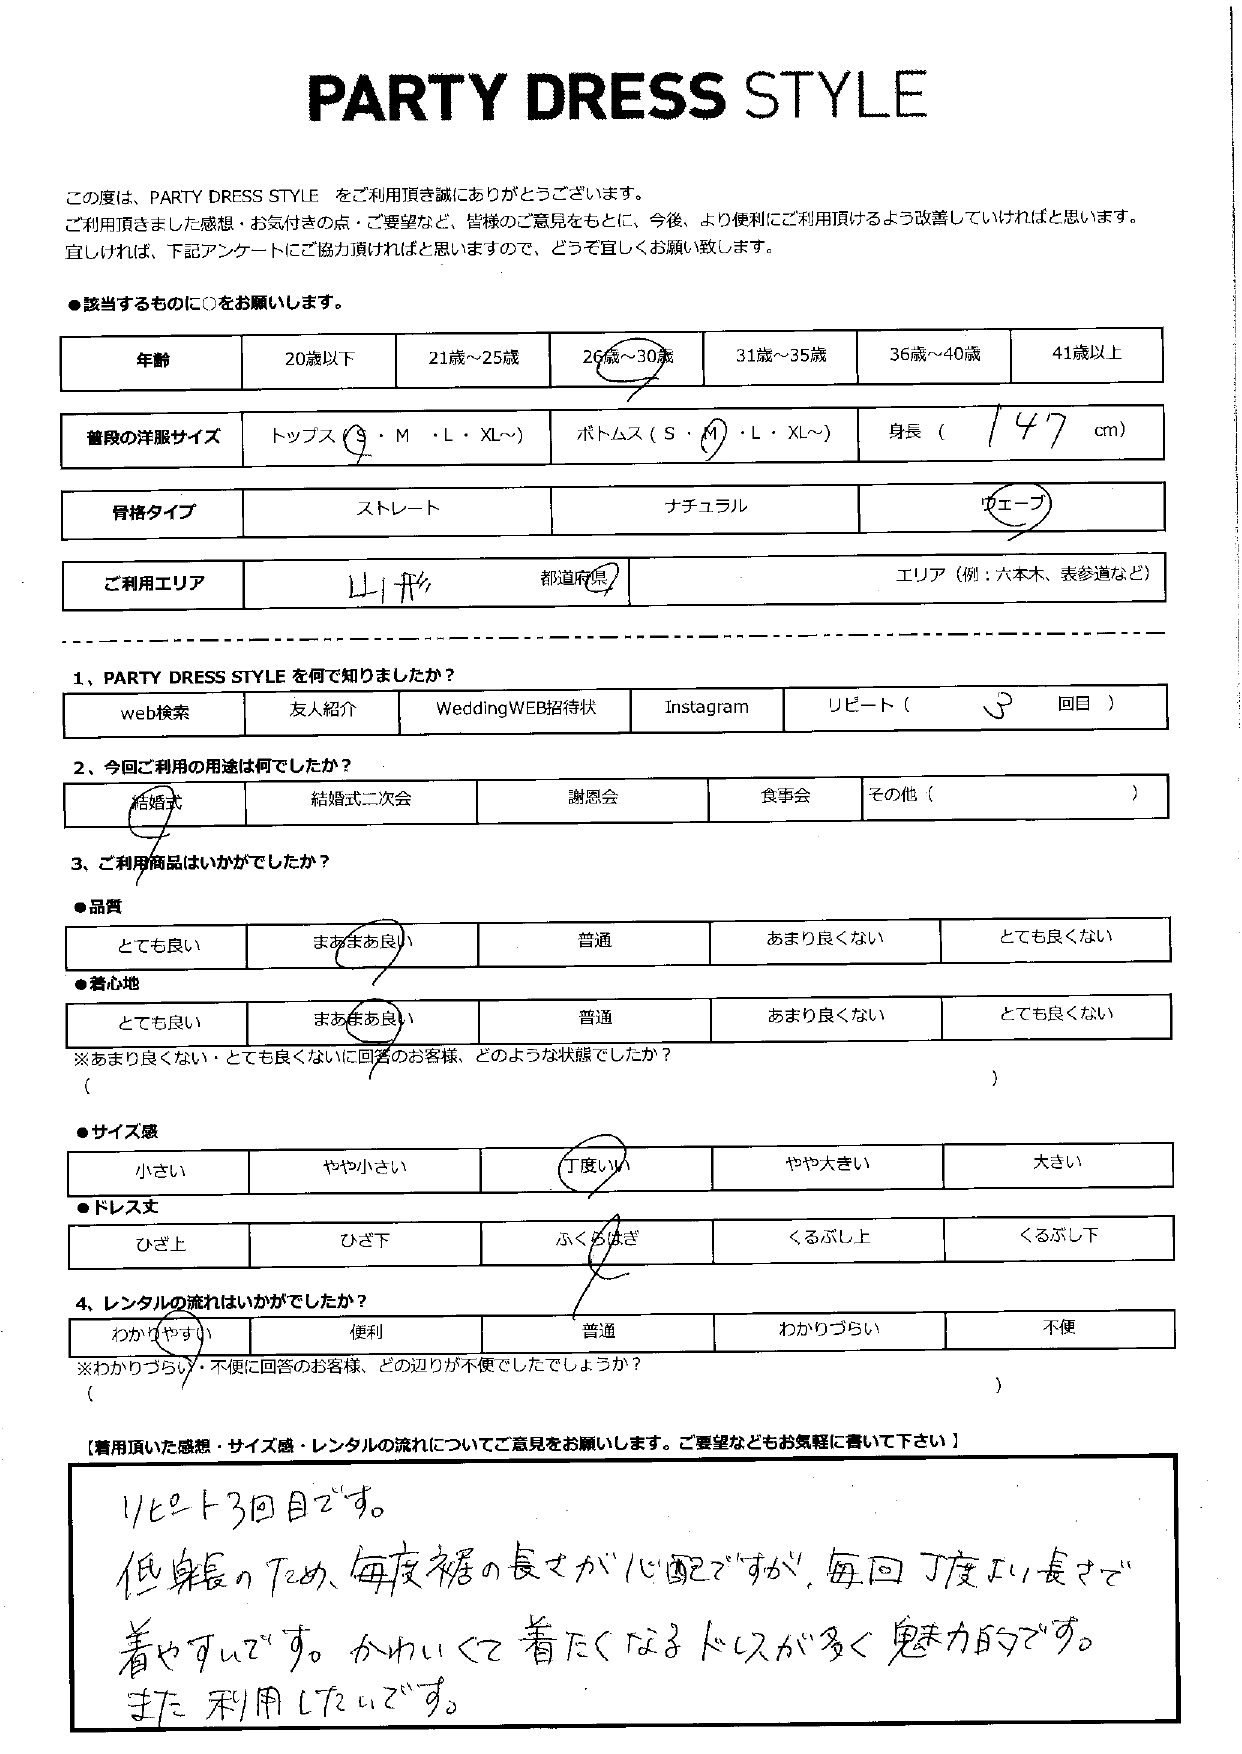 PARTY DRESS STYLE
この度は、PARTY DRESS STYLE をご利用頂き誠にありがとうございます。
ご利用頂きました感想・お気付きの点・ご要望など、皆様のご意見をもとに、今後、より便利にご利用頂けるよう改善していければと思います。
宜しければ、下記アンケートにご協力頂ければと思いますので、どうぞ宜しくお願い致します。
●該当するものに○をお願いします。
年齢 20歳以下 21歳～25歳 26歳～30歳 31歳～35歳 36歳～40歳 41歳以上
普段の洋服サイズ トップス（S・M・L・XL～） ボトムス（S・M・L・XL～） 身長（ 147 cm）
骨格タイプ ストレート ナチュラル ウェーブ
ご利用エリア 山形 都道府県 エリア（例：六本木、表参道など）
1、PARTY DRESS STYLE を何で知りましたか？
web検索 友人紹介 WeddingWEB招待状 Instagram リピート（ 3 回目 ）
2、今回ご利用の用途は何でしたか？
結婚式 結婚式二次会 謝恩会 食事会 その他（ ）
3、ご利用商品はいかがでしたか？
●品質
とても良い まあまあ良い 普通 あまり良くない とても良くない
●着心地
とても良い まあまあ良い 普通 あまり良くない とても良くない
※あまり良くない・とても良くないに回答のお客様、どのような状態でしたか？
（ ）
●サイズ感
小さい やや小さい 丁度いい やや大きい 大きい
●ドレス丈
ひざ上 ひざ下 ふくらはぎ くるぶし上 くるぶし下
4、レンタルの流れはいかがでしたか？
わかりやすい 便利 普通 わかりづらい 不便
※わかりづらい・不便に回答のお客様、どの辺りが不便でしたでしょうか？
（ ）
【着用頂いた感想・サイズ感・レンタルの流れについてご意見をお願いします。ご要望などもお気軽に書いて下さい】
リピート3回目です。
低身長のため、毎度裾の長さが心配ですが、毎回丁度よい長さで
着やすいです。かわいくて着たくなるドレスが多く魅力的です。
また利用したいです。